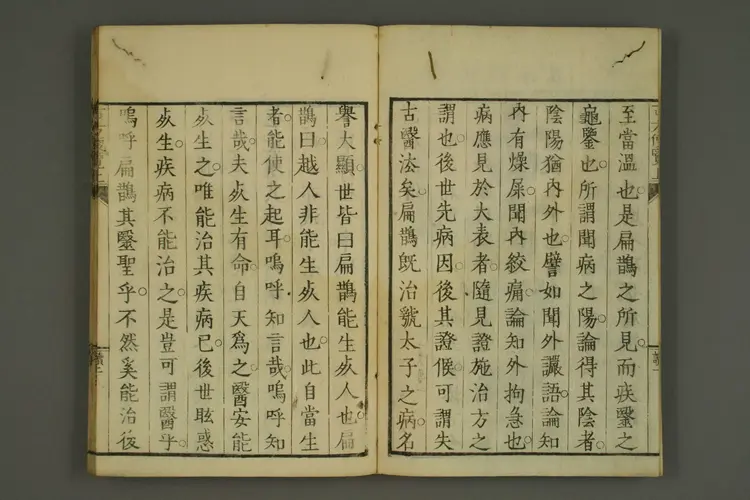 至當溫也是扁鵲之所見而疾毉之
龜鑒也所謂聞病之陽論得其陰者
陰陽猶內外也譬如聞外讝語論知
內有燥屎聞內絞痛論知外拘急也
病應見於大表者隨見證施治方之
謂也後世先病因後其證候可謂失
古醫法矣扁鵲既治虢太子之病名
譽大顯世皆曰扁鵲能生死人也扁
鵲曰越人非能生死人也此自當生
者能使之起耳嗚呼知言哉嗚呼知
言哉夫死生有命自天為之醫安能
死生之唯能治其疾病已後世眩惑
死生疾病不能治之是豈可謂醫乎
嗚呼扁鵲其毉聖乎不然奚能治後